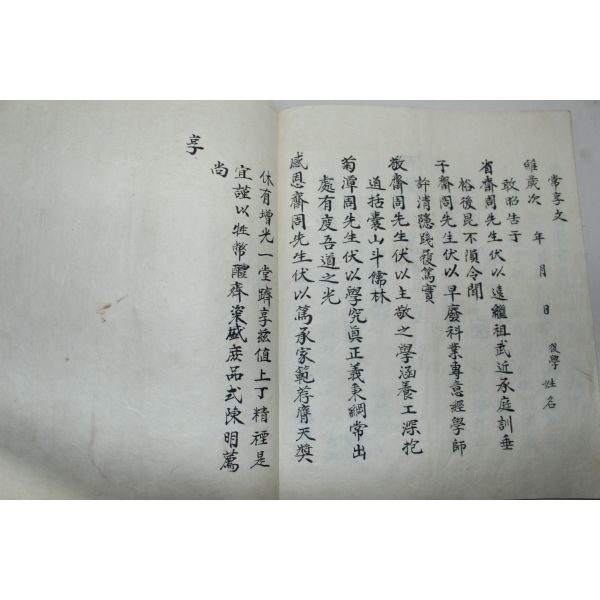 常享文
維歲次 年 月 日 後學姓名
敢昭告于
省齋周先生伏以遠繼祖武近承庭訓垂
裕後昆不隕令聞
于齋周先生伏以早廢科業專意經學師
許清隱踐履篤實
敬齋周先生伏以主敬之學涵養工深抱
道括囊山斗儒林
菊潭周先生伏以學究眞正義秉綱常出
處有度吾道之光
感恩齋周先生伏以篤承家範荐膺天奬
休有增光一堂躋享玆值上丁精禋是
宜謹以牲幣醴齊粢盛庶品式陳明薦
尚
享